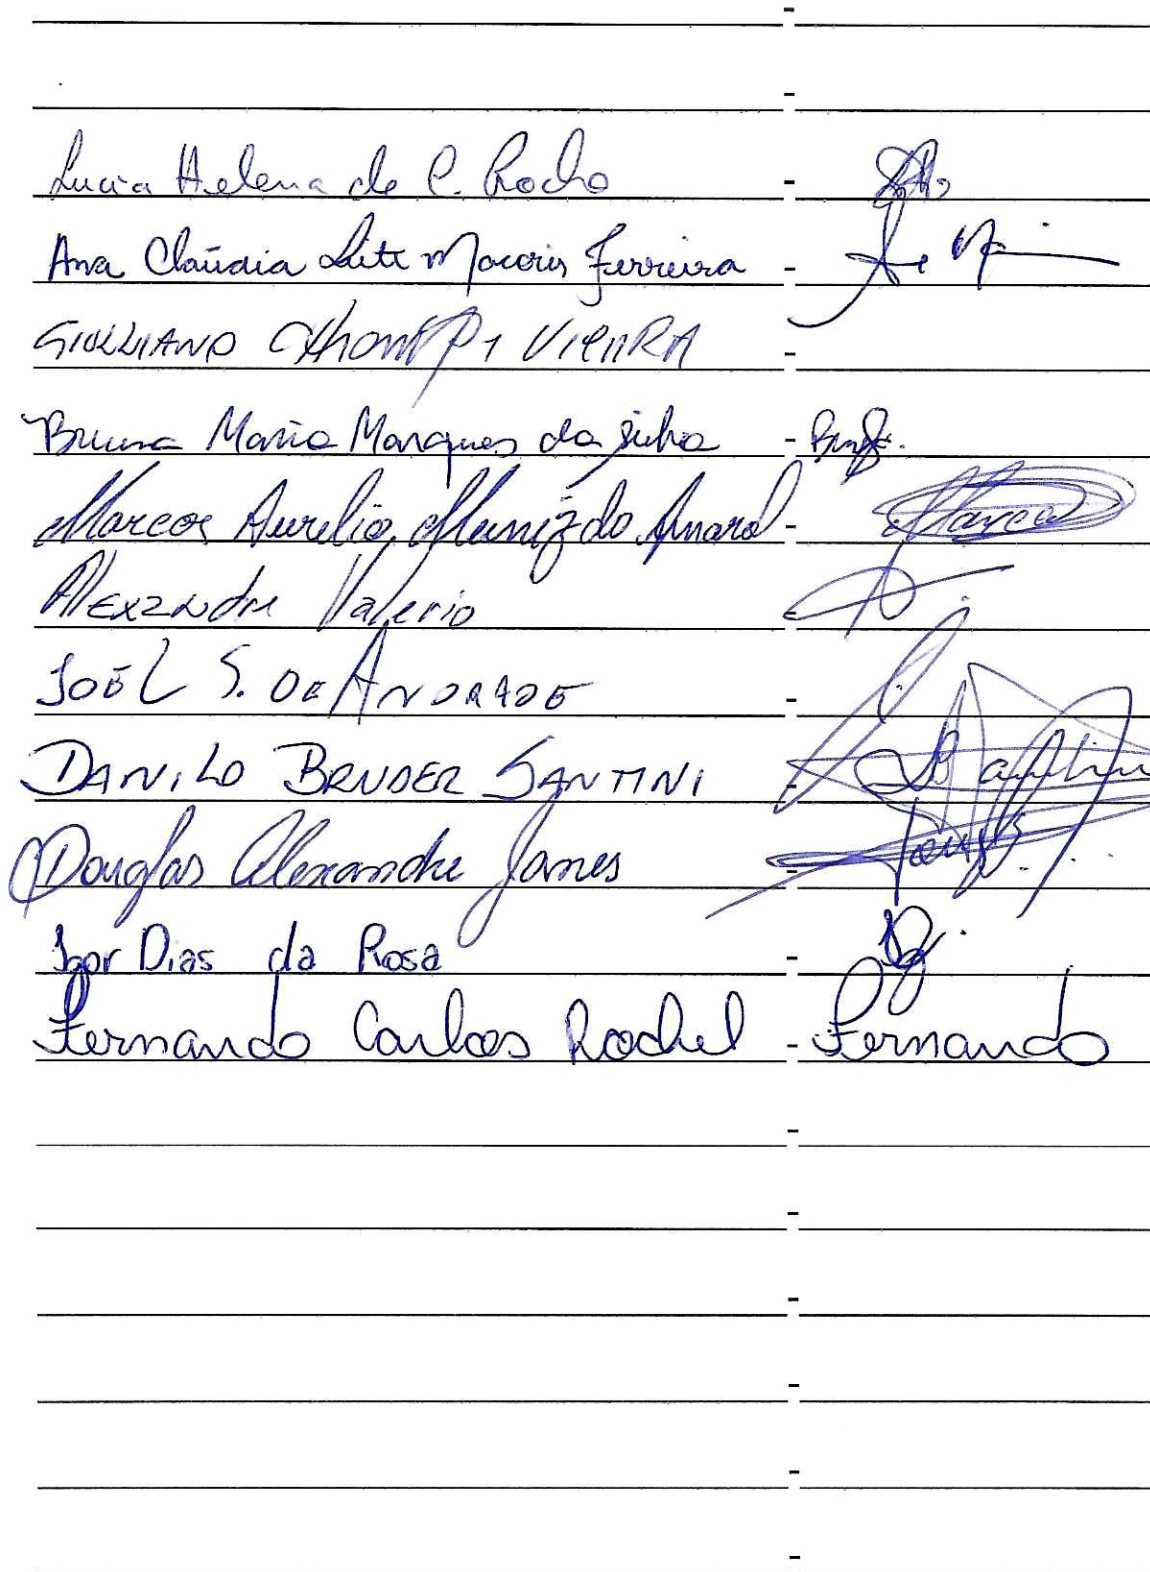 Lucia Helena de C. Rocha -
Ana Claúdia Leite Macoris Ferreira -
GIULLIANO VIEIRA -
Bruna Maria Marques da Silva -
Marcos Aurelio Muniz do Amaral - Marcos
Alexandre Valerio
JOEL S. DE ANDRADE -
DANILO BRUDER SANTINI - Santini
Douglas Alexandre Janes - Doug
Igor Dias da Rosa -
Fernando Carlos Rochel - Fernando